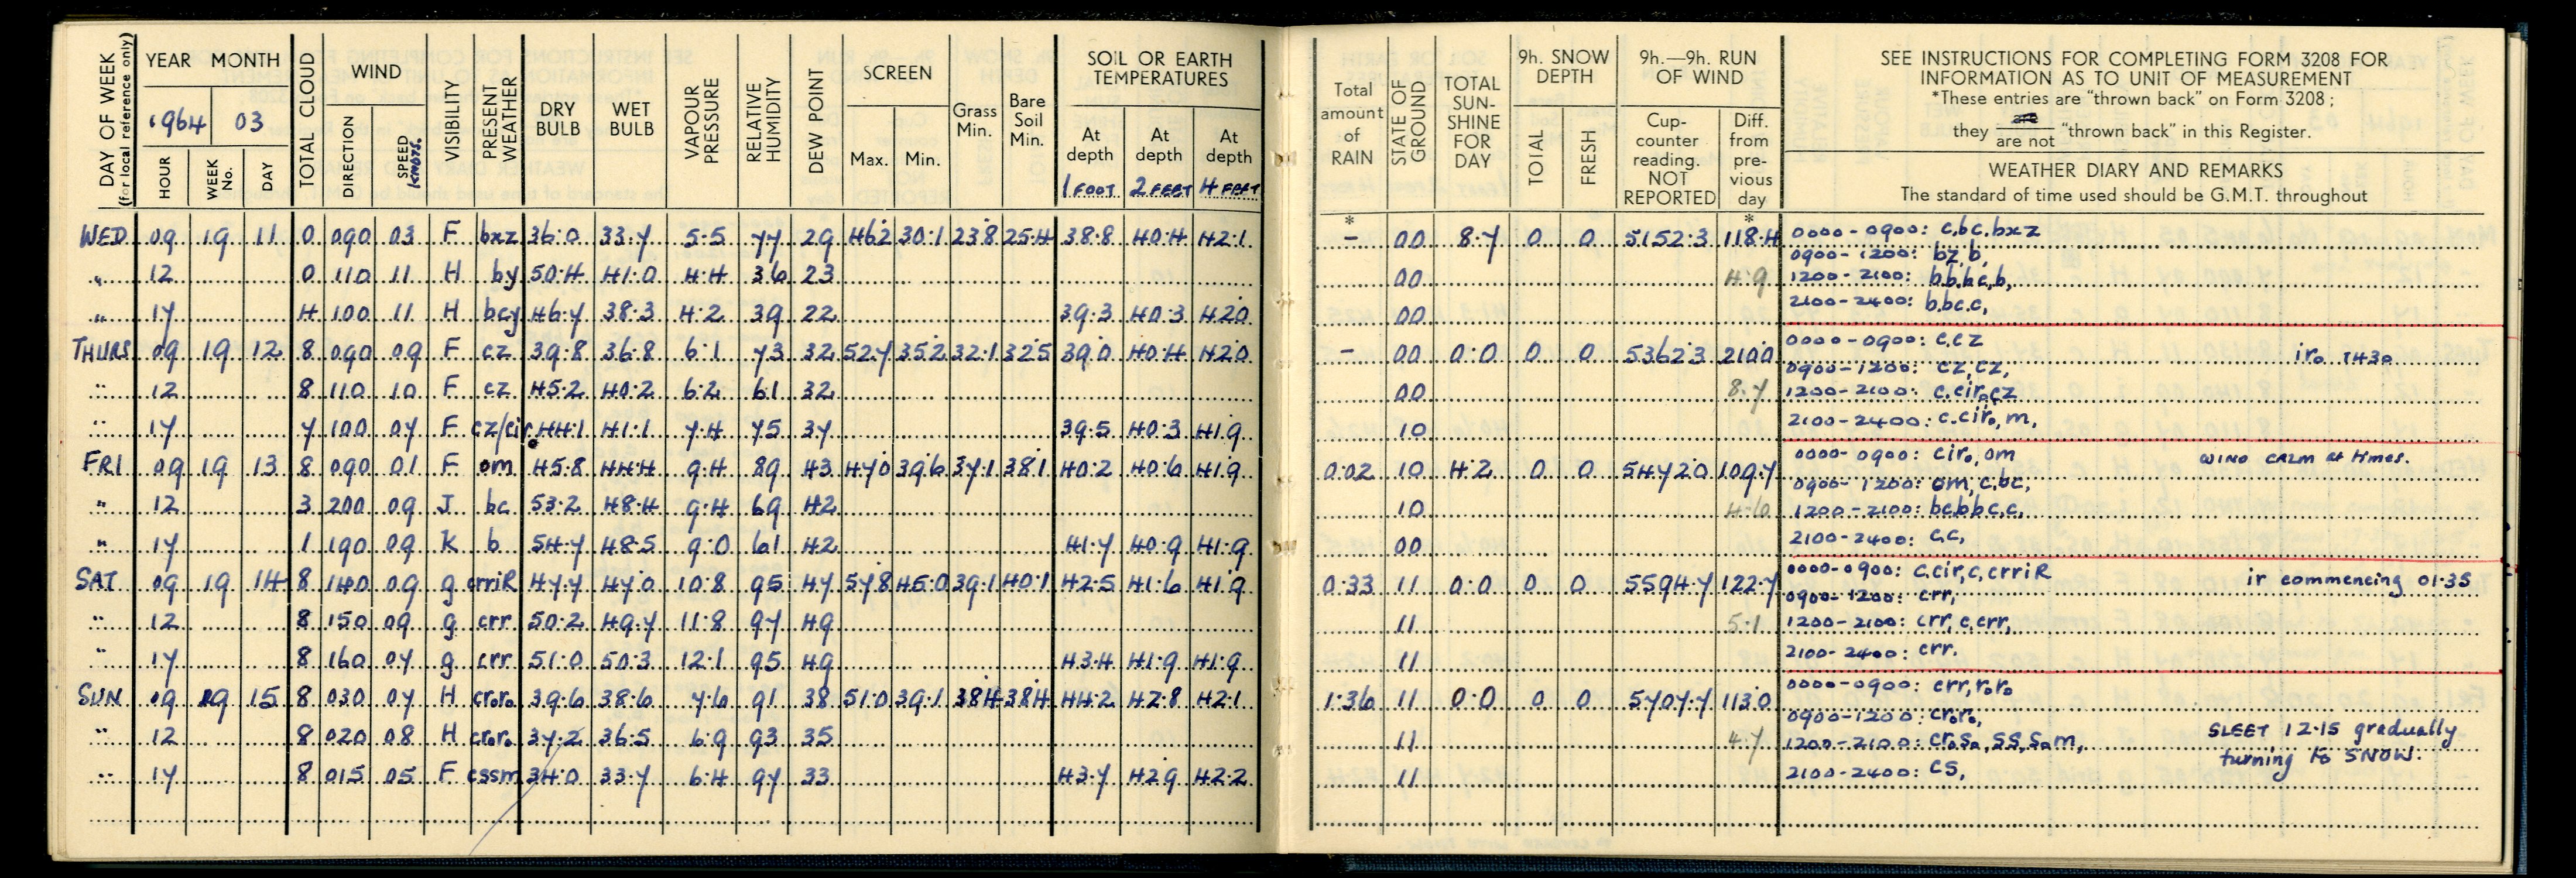 DAY OF WEEK (for local reference only)
YEAR MONTH
1964 03
HOUR WEEK No. DAY
TOTAL CLOUD
WIND
DIRECTION SPEED KNOTS.
VISIBILITY
PRESENT WEATHER
DRY BULB
WET BULB
VAPOUR PRESSURE
RELATIVE HUMIDITY
DEW POINT
SCREEN
Max. Min.
Grass Min.
Bare Soil Min.
SOIL OR EARTH TEMPERATURES
At depth At depth At depth
1 FOOT 2 FEET 4 FEET
Total amount of RAIN
STATE OF GROUND
TOTAL SUN-SHINE FOR DAY
9h. SNOW DEPTH
TOTAL FRESH
9h.—9h. RUN OF WIND
Cup-counter reading. NOT REPORTED
Diff. from pre-vious day
SEE INSTRUCTIONS FOR COMPLETING FORM 3208 FOR
INFORMATION AS TO UNIT OF MEASUREMENT
*These entries are "thrown back" on Form 3208;
they are / are not "thrown back" in this Register.
WEATHER DIARY AND REMARKS
The standard of time used should be G.M.T. throughout
* *
WED 09 19 11 0 090 03 F bxz 36.0 33.7 5.5 77 29 46.2 30.1 23.8 25.4 38.8 40.4 42.1 – 00 8.7 0 0 5152.3 118.4 0000-0900: c,bc,bxz
0900-1200: bz,b,
" 12 0 110 11 H by 50.4 41.0 4.4 36 23 00 4.9 1200-2100: b,b,bc,b,
" 17 4 100 11 H bcy 46.7 38.3 4.2 39 22 39.3 40.3 42.0 00 2100-2400: b,bc,c,
THURS 09 19 12 8 090 09 F cz 39.8 36.8 6.1 73 32 52.7 35.2 32.1 32.5 39.0 40.4 42.0 – 00 0.0 0 0 5362.3 210.0 0000-0900: c,cz ir₀ 1430
0900-1200: cz,cz,
" 12 8 110 10 F cz 45.2 40.2 6.2 61 32 00 8.7 1200-2100: c,cir₀,cz
" 17 7 100 07 F cz/cir₀ 44.1 41.1 7.4 75 37 39.5 40.3 41.9 10 2100-2400: c,cir₀,m,
FRI 09 19 13 8 090 01 F om 45.8 44.4 9.4 89 43 47.0 39.6 37.1 38.1 40.2 40.6 41.9 0.02 10 4.2 0 0 5472.0 109.7 0000-0900: cir₀,om WIND CALM at times.
0900-1200: om,c,bc,
" 12 3 200 09 J bc 53.2 48.4 9.4 69 42 10 4.6 1200-2100: bc,b,bc,c,
" 17 1 190 09 K b 54.7 48.5 9.0 61 42 41.7 40.9 41.9 00 2100-2400: c,c,
SAT 09 19 14 8 140 09 g crriR 47.7 47.0 10.8 95 47 57.8 45.0 39.1 40.1 42.5 41.6 41.9 0.33 11 0.0 0 0 5594.7 122.7 0000-0900: c,cir,c,crriR ir commencing 01.35
0900-1200: crr,
" 12 8 150 09 g crr 50.2 49.7 11.8 97 49 11 5.1 1200-2100: crr,c,crr,
" 17 8 160 07 g crr 51.0 50.3 12.1 95 49 43.4 41.9 41.9 11 2100-2400: crr.
SUN 09 19 15 8 030 07 H cr₀r₀ 39.6 38.6 7.6 91 38 51.0 39.1 38.4 38.4 44.2 42.8 42.1 1.36 11 0.0 0 0 5707.7 113.0 0000-0900: crr,r₀r₀
0900-1200: cr₀r₀,
" 12 8 020 08 H cr₀r₀ 37.2 36.5 6.9 93 35 11 4.7 1200-2100: cr₀s₀,ss,s₀m, SLEET 12.15 gradually turning to SNOW.
" 17 8 015 05 F cssm 34.0 33.7 6.4 97 33 43.7 42.9 42.2 11 2100-2400: cs,